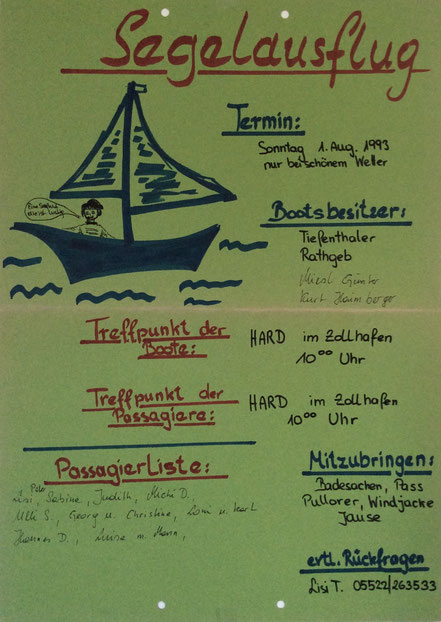 Segelausflug
Termin:
Sonntag 1. Aug. 1993
nur bei schönem Wetter
Eine Seefahrt
die ist lustig
Bootsbesitzer:
Tiefenthaler
Rathgeb
Günter
Kurt Heimberger
Treffpunkt der
Boote:
HARD im Zollhafen
10⁰⁰ Uhr
Treffpunkt der
Passagiere:
HARD im Zollhafen
10⁰⁰ Uhr
PassagierListe:
Peter
Lisi, Sabine, Judith, Michi D.
Ulli S., Georg u. Christine, Loni u. Karl
Hannes D., Luise m. Mann,
Mitzubringen:
Badesachen, Pass
Pullover, Windjacke
Jause
evtl. Rückfragen
Lisi T. 05522/263533